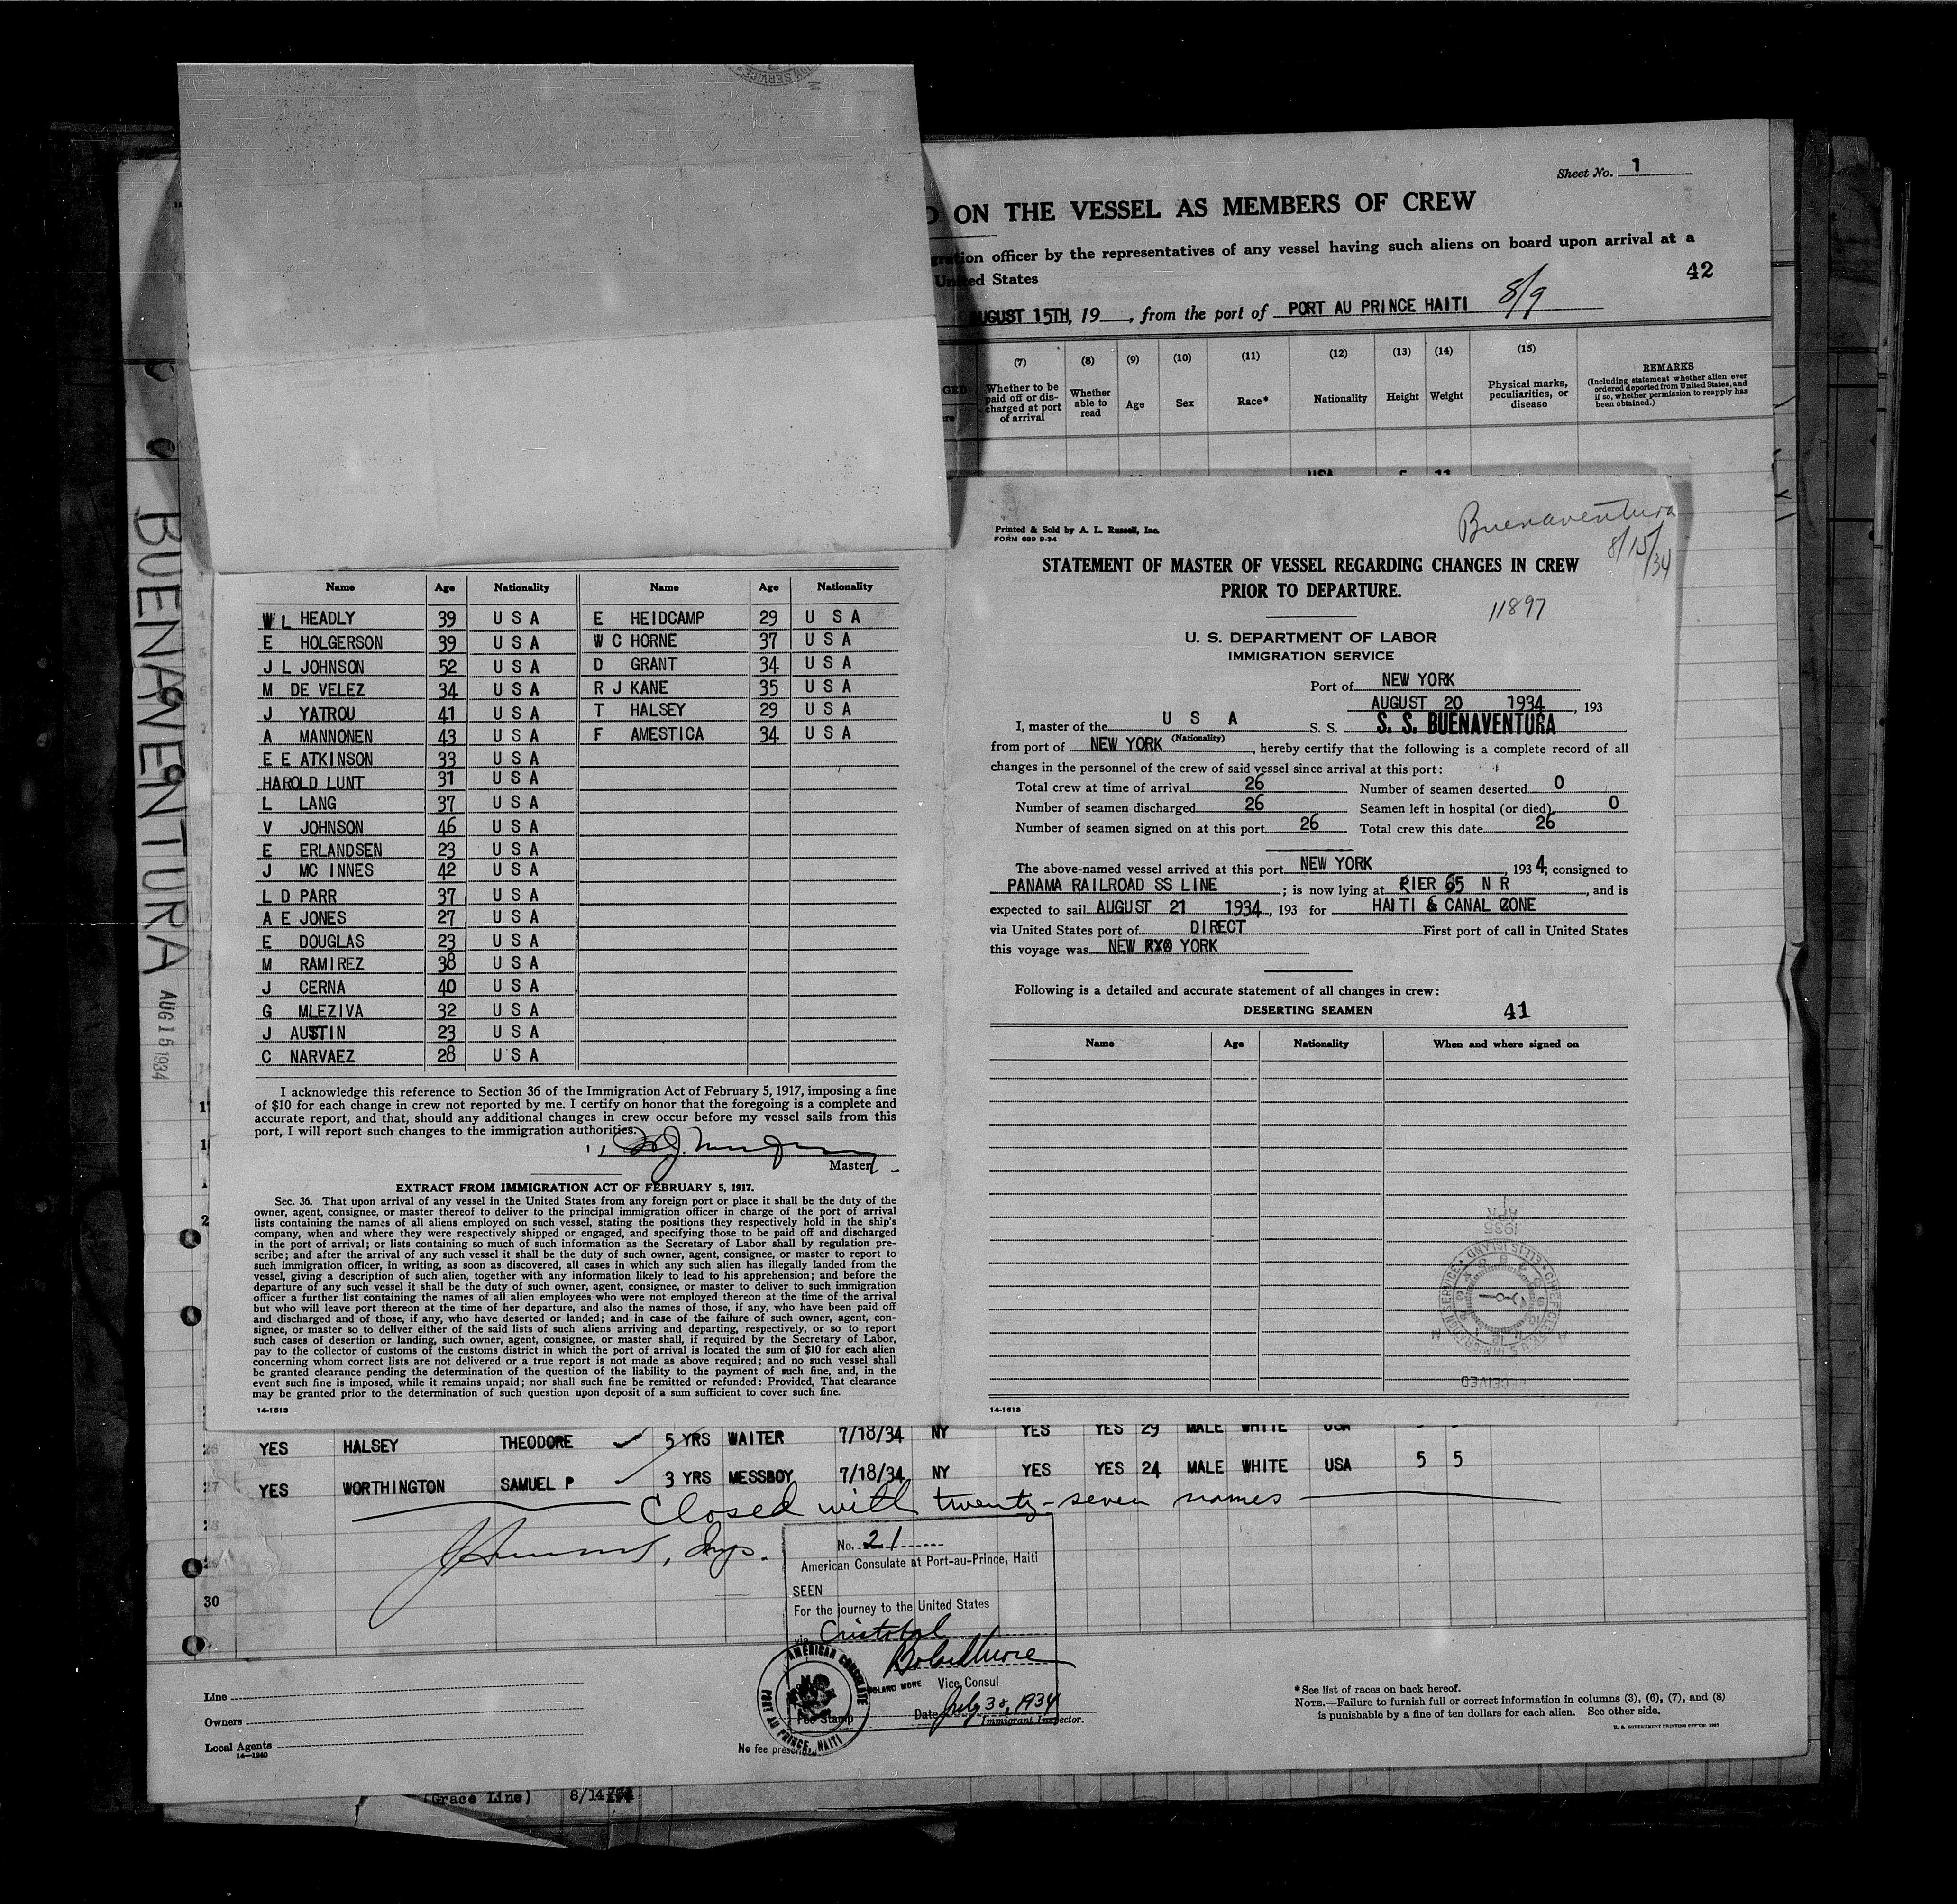 Sheet No. 1
ON THE VESSEL AS MEMBERS OF CREW
officer by the representatives of any vessel having such aliens on board upon arrival at a
United States
42
AUGUST 15TH, 19 , from the port of PORT AU PRINCE HAITI 8/9
(7) (8) (9) (10) (11) (12) (13) (14) (15)
Whether to be paid off or discharged at port of arrival
Whether able to read
Age
Sex
Race*
Nationality
Height
Weight
Physical marks, peculiarities, or disease
REMARKS
(Including statement whether alien ever
ordered deported from United States, and
if so, whether permission to reapply has
been obtained.)
BUENAVENTURA
AUG 15 1934
Name Age Nationality Name Age Nationality
W L HEADLY 39 U S A E HEIDCAMP 29 U S A
E HOLGERSON 39 U S A W C HORNE 37 U S A
J L JOHNSON 52 U S A D GRANT 34 U S A
M DE VELEZ 34 U S A R J KANE 35 U S A
J YATROU 41 U S A T HALSEY 29 U S A
A MANNONEN 43 U S A F AMESTICA 34 U S A
E E ATKINSON 33 U S A
HAROLD LUNT 31 U S A
L LANG 37 U S A
V JOHNSON 46 U S A
E ERLANDSEN 23 U S A
J MC INNES 42 U S A
L D PARR 37 U S A
A E JONES 27 U S A
E DOUGLAS 23 U S A
M RAMIREZ 38 U S A
J CERNA 40 U S A
G MLEZIVA 32 U S A
J AUSTIN 23 U S A
C NARVAEZ 28 U S A
I acknowledge this reference to Section 36 of the Immigration Act of February 5, 1917, imposing a fine
of $10 for each change in crew not reported by me. I certify on honor that the foregoing is a complete and
accurate report, and that, should any additional changes in crew occur before my vessel sails from this
port, I will report such changes to the immigration authorities.
Master
EXTRACT FROM IMMIGRATION ACT OF FEBRUARY 5, 1917.
Sec. 36. That upon arrival of any vessel in the United States from any foreign port or place it shall be the duty of the
owner, agent, consignee, or master thereof to deliver to the principal immigration officer in charge of the port of arrival
lists containing the names of all aliens employed on such vessel, stating the positions they respectively hold in the ship's
company, when and where they were respectively shipped or engaged, and specifying those to be paid off and discharged
in the port of arrival; or lists containing so much of such information as the Secretary of Labor shall by regulation pre-
scribe; and after the arrival of any such vessel it shall be the duty of such owner, agent, consignee, or master to report to
such immigration officer, in writing, as soon as discovered, all cases in which any such alien has illegally landed from the
vessel, giving a description of such alien, together with any information likely to lead to his apprehension; and before the
departure of any such vessel it shall be the duty of such owner, agent, consignee, or master to deliver to such immigration
officer a further list containing the names of all alien employees who were not employed thereon at the time of the arrival
but who will leave port thereon at the time of her departure, and also the names of those, if any, who have been paid off
and discharged and of those, if any, who have deserted or landed; and in case of the failure of such owner, agent, con-
signee, or master so to deliver either of the said lists of such aliens arriving and departing, respectively, or so to report
such cases of desertion or landing, such owner, agent, consignee, or master shall, if required by the Secretary of Labor,
pay to the collector of customs of the customs district in which the port of arrival is located the sum of $10 for each alien
concerning whom correct lists are not delivered or a true report is not made as above required; and no such vessel shall
be granted clearance pending the determination of the question of the liability to the payment of such fine, and, in the
event such fine is imposed, while it remains unpaid; nor shall such fine be remitted or refunded: Provided, That clearance
may be granted prior to the determination of such question upon deposit of a sum sufficient to cover such fine.
14-1613
Printed & Sold by A. L. Russell, Inc.
FORM 689 9-34
Buenaventura
8/15/34
STATEMENT OF MASTER OF VESSEL REGARDING CHANGES IN CREW
PRIOR TO DEPARTURE.
11897
U. S. DEPARTMENT OF LABOR
IMMIGRATION SERVICE
Port of NEW YORK
AUGUST 20 1934, 193
I, master of the U S A S. S. S. S. BUENAVENTURA
(Nationality)
from port of NEW YORK, hereby certify that the following is a complete record of all
changes in the personnel of the crew of said vessel since arrival at this port:
Total crew at time of arrival 26 Number of seamen deserted 0
Number of seamen discharged 26 Seamen left in hospital (or died) 0
Number of seamen signed on at this port 26 Total crew this date 26
The above-named vessel arrived at this port NEW YORK, 1934, consigned to
PANAMA RAILROAD SS LINE; is now lying at PIER 65 N R, and is
expected to sail AUGUST 21 1934, 193 for HAITI & CANAL ZONE
via United States port of DIRECT First port of call in United States
this voyage was NEW YORK
Following is a detailed and accurate statement of all changes in crew:
DESERTING SEAMEN 41
Name Age Nationality When and where signed on
14-1613
YES HALSEY THEODORE 5 YRS WAITER 7/18/34 NY YES YES 29 MALE WHITE USA
27 YES WORTHINGTON SAMUEL P 3 YRS MESSBOY 7/18/34 NY YES YES 24 MALE WHITE USA 5 5
Closed with twenty-seven names
28
30
No. 21
American Consulate at Port-au-Prince, Haiti
SEEN
For the journey to the United States
via Cristobal
Vice Consul
Date July 30, 1934
Immigrant Inspector.
Fee Stamp
AMERICAN CONSULATE
PORT AU PRINCE, HAITI
Line
Owners
Local Agents
14-1240
*See list of races on back hereof.
NOTE.—Failure to furnish full or correct information in columns (3), (6), (7), and (8)
is punishable by a fine of ten dollars for each alien. See other side.
(Grace Line) 8/14